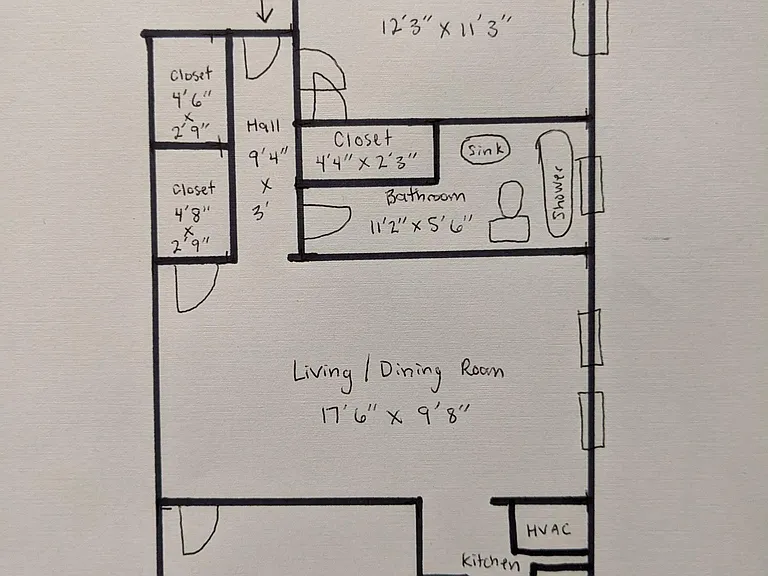 12'3" x 11'3"
Closet
4'6"
x
2'9"
Hall
9'4"
x
3'
Closet
4'4" x 2'3"
Sink
Shower
Closet
4'8"
x
2'9"
Bathroom
11'2" x 5'6"
Living / Dining Room
17'6" x 9'8"
HVAC
Kitchen